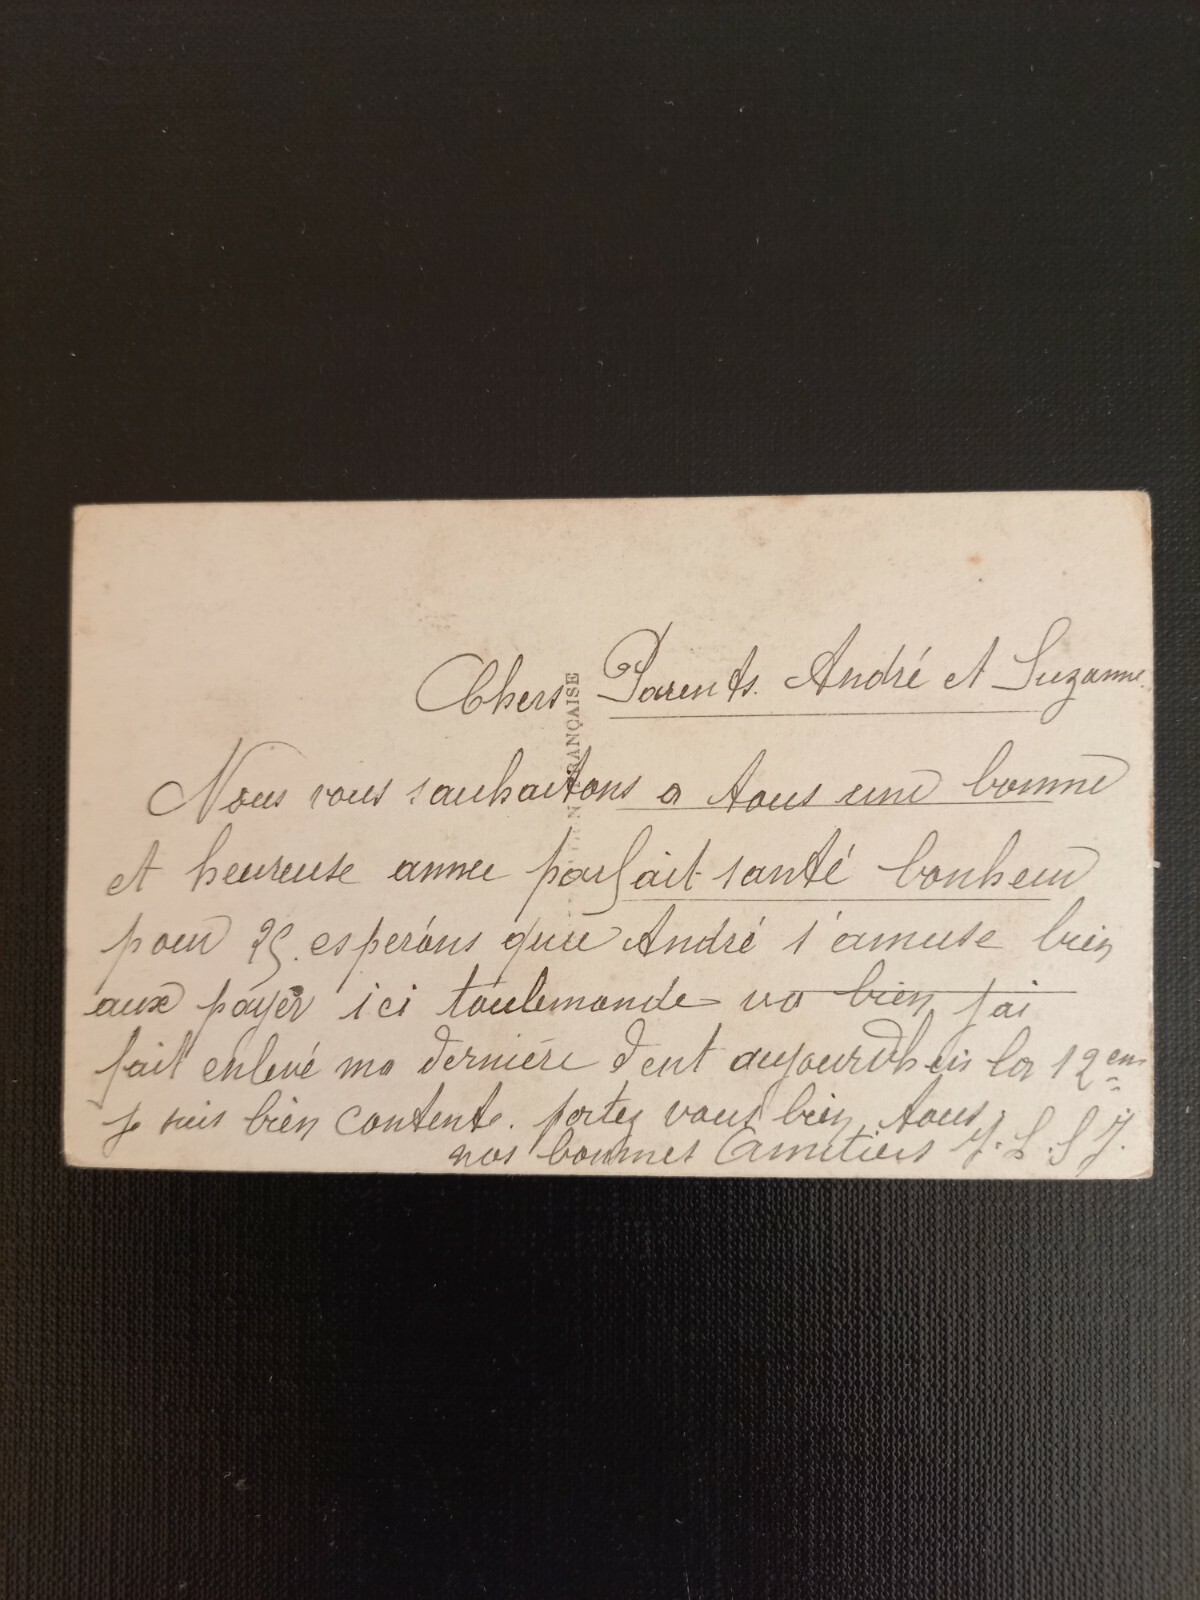 Chers Parents. André et Suzanne.
Nous vous souhaitons a tous une bonne
et heureuse année parfait santé bonheur
pour 25. espérons que André s'amuse bien
aux payer ici toulemonde va bien jai
fait enlevé ma dernière dent aujourdhui la 12em
je suis bien contente. portez vous bien tous
nos bonnes Amitiers J. L. S J.
FRANÇAISE